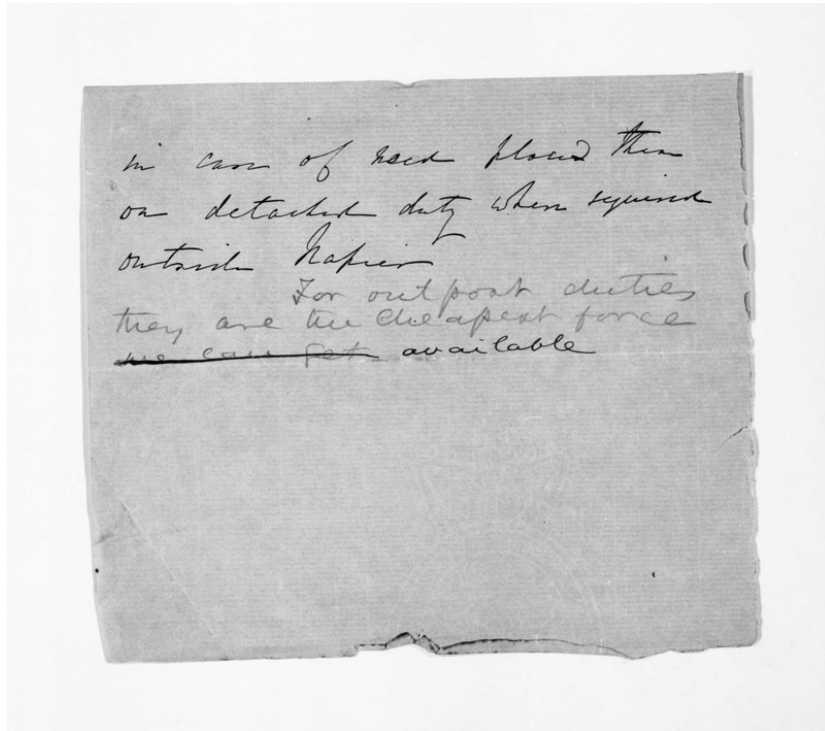 in case of need placed them
on detached duty when required
outside Napier
For outpost duties
they are the cheapest force
we can get available